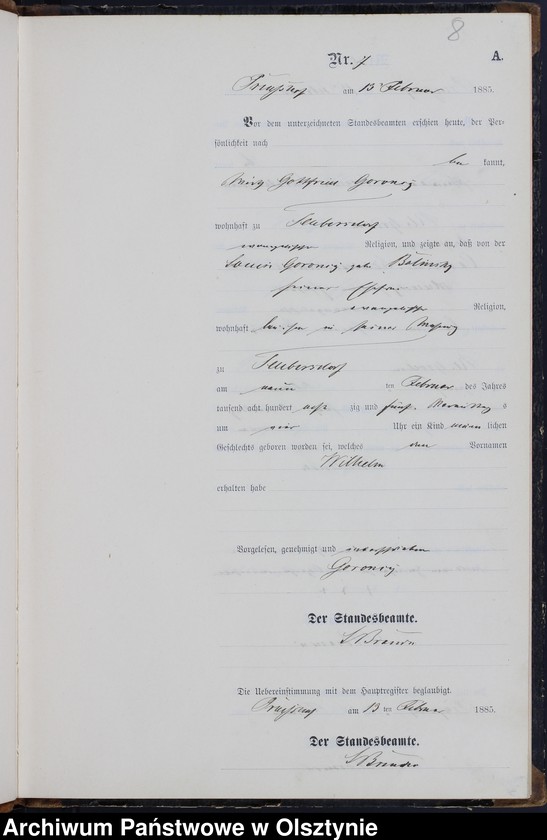 8
Nr. 7 A.
am 13 Februar 1885.
Vor dem unterzeichneten Standesbeamten erschien heute, der Per-
sönlichkeit nach
be kannt,
Gottfried Goronzy
wohnhaft zu Seubersdorf
evangelischer Religion, und zeigte an, daß von der
Goronzy geb.
seiner Ehefrau
evangelischer Religion,
wohnhaft bei ihm in seiner Wohnung
zu Seubersdorf
am neun ten Februar des Jahres
tausend acht hundert acht zig und fünf s
um vier Uhr ein Kind männ lichen
Geschlechts geboren worden sei, welches den Vornamen
Wilhelm
erhalten habe
Vorgelesen, genehmigt und unterschrieben
Goronzy
Der Standesbeamte.
Die Uebereinstimmung mit dem Hauptregister beglaubigt.
am 13 ten Februar 1885.
Der Standesbeamte.
Archiwum Państwowe w Olsztynie